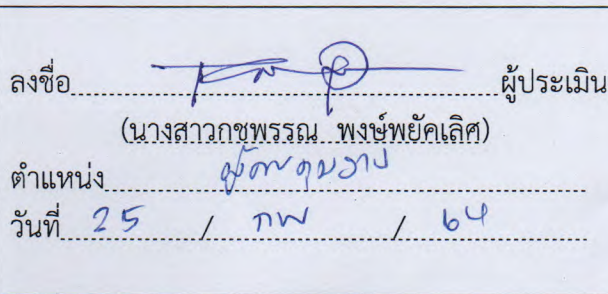 ลงชื่อ ผู้ประเมิน
(นางสาวกชพรรณ พงษ์พยัคเลิศ)
ตำแหน่ง ผู้ควบคุมงาน
วันที่ 25 / กพ / 64